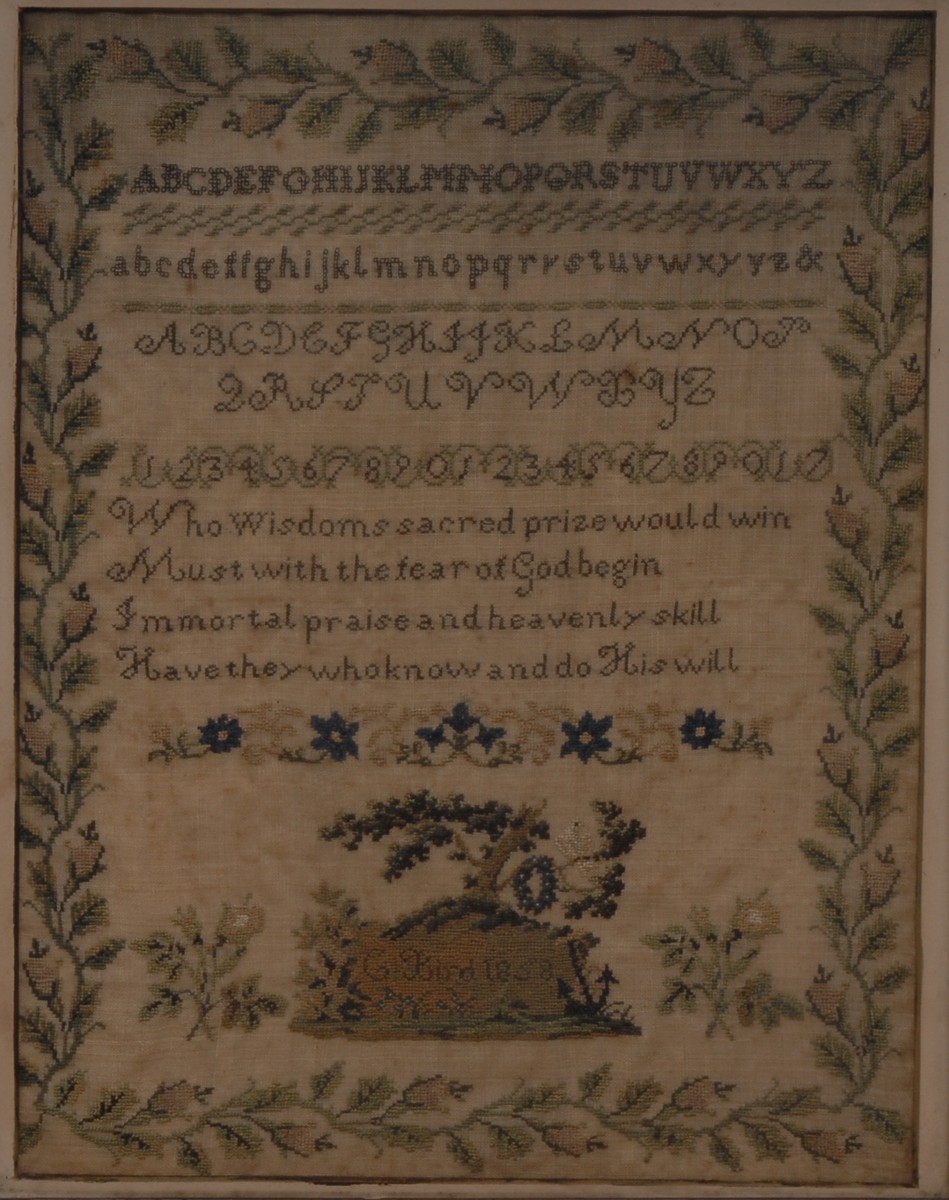 ABCDEFGHIJKLMNOPQRSTUVWXYZ
abcdeffghijklmnopqrrstuvwxyyyz&
ABCDEFGHIJKLMNOP
QRSTUVWXYZ
1234567890123456789012
Who Wisdoms sacred prize would win
Must with the fear of God begin
Immortal praise and heavenly skill
Have they who know and do His will
Bird 1838